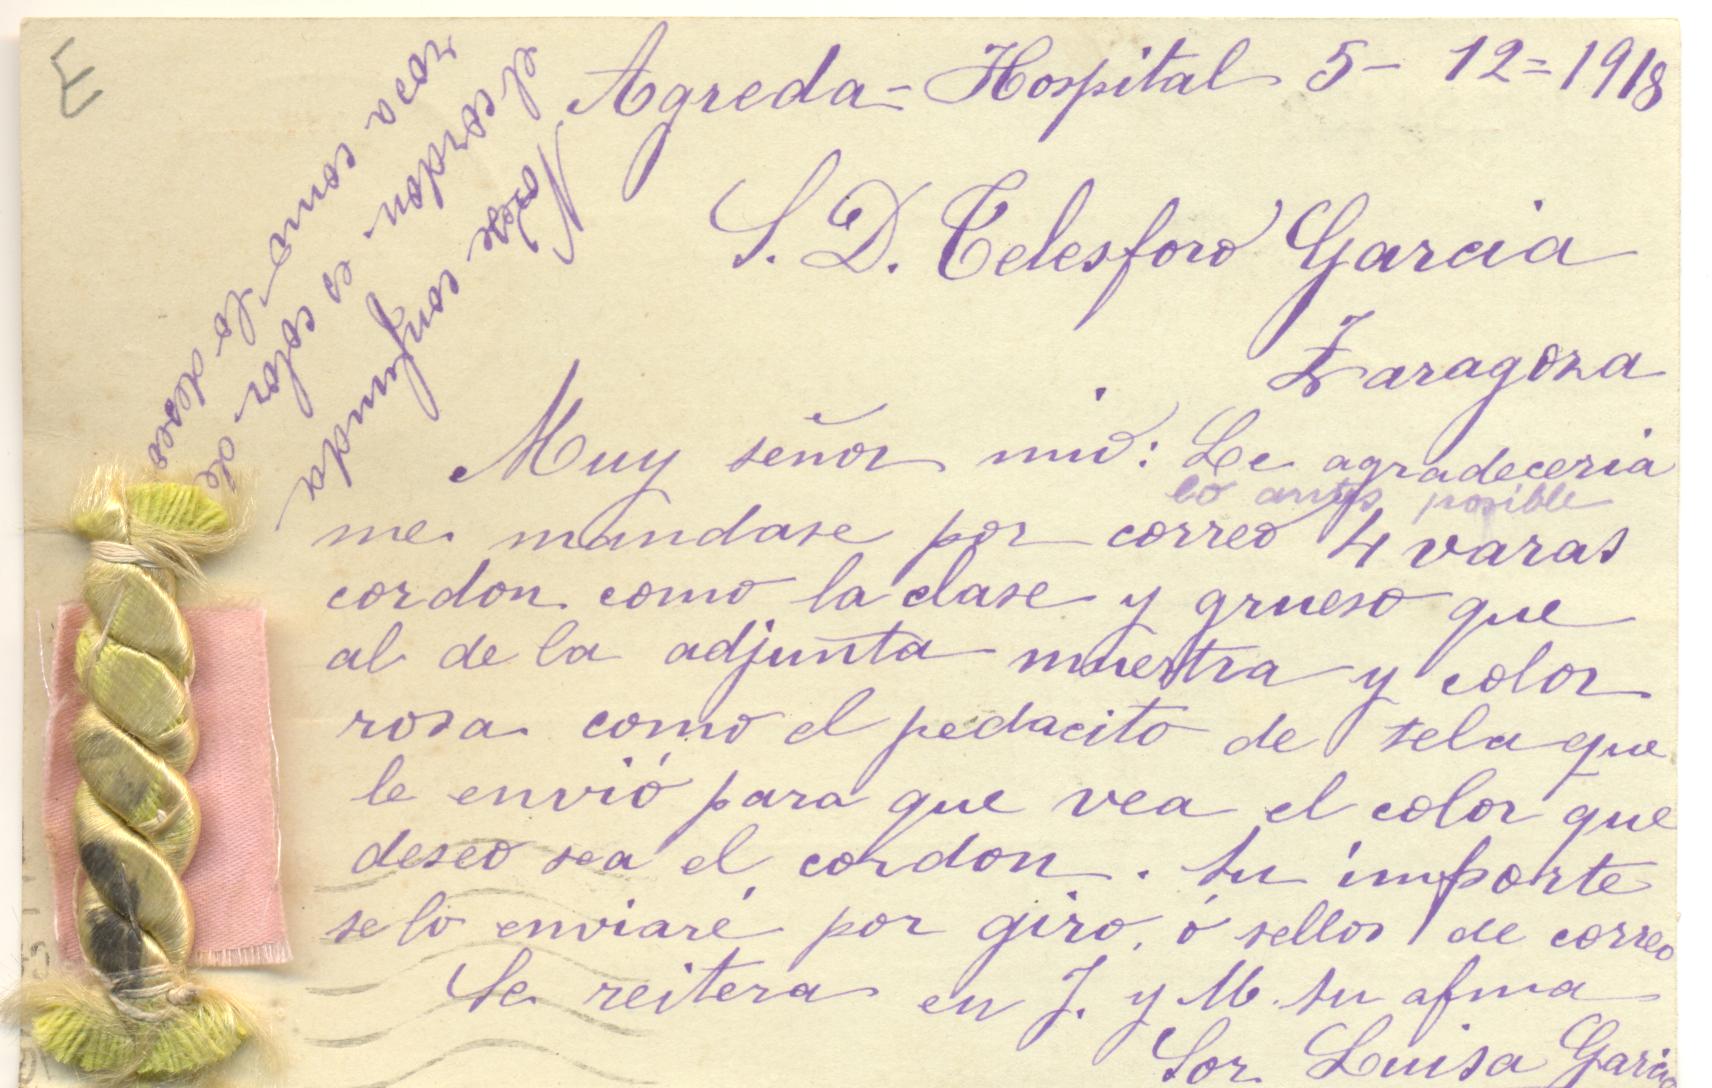 E
Agreda - Hospital 5 - 12 = 1918
S. D. Telesforo Garcia
Zaragoza
Muy señor mio: Le agradeceria
lo antes posible
me mandase por correo 4 varas
cordon como la clase y grueso que
al de la adjunta muestra y color
rosa como el pedacito de tela que
le envió para que vea el color que
deseo sea el cordon. Su importe
se lo enviaré por giro, ó sellos de correo
Se reitera en J. y M. su afma
Sor Luisa Garcia
No se confunda
el cordon es color de
rosa como lo deseo